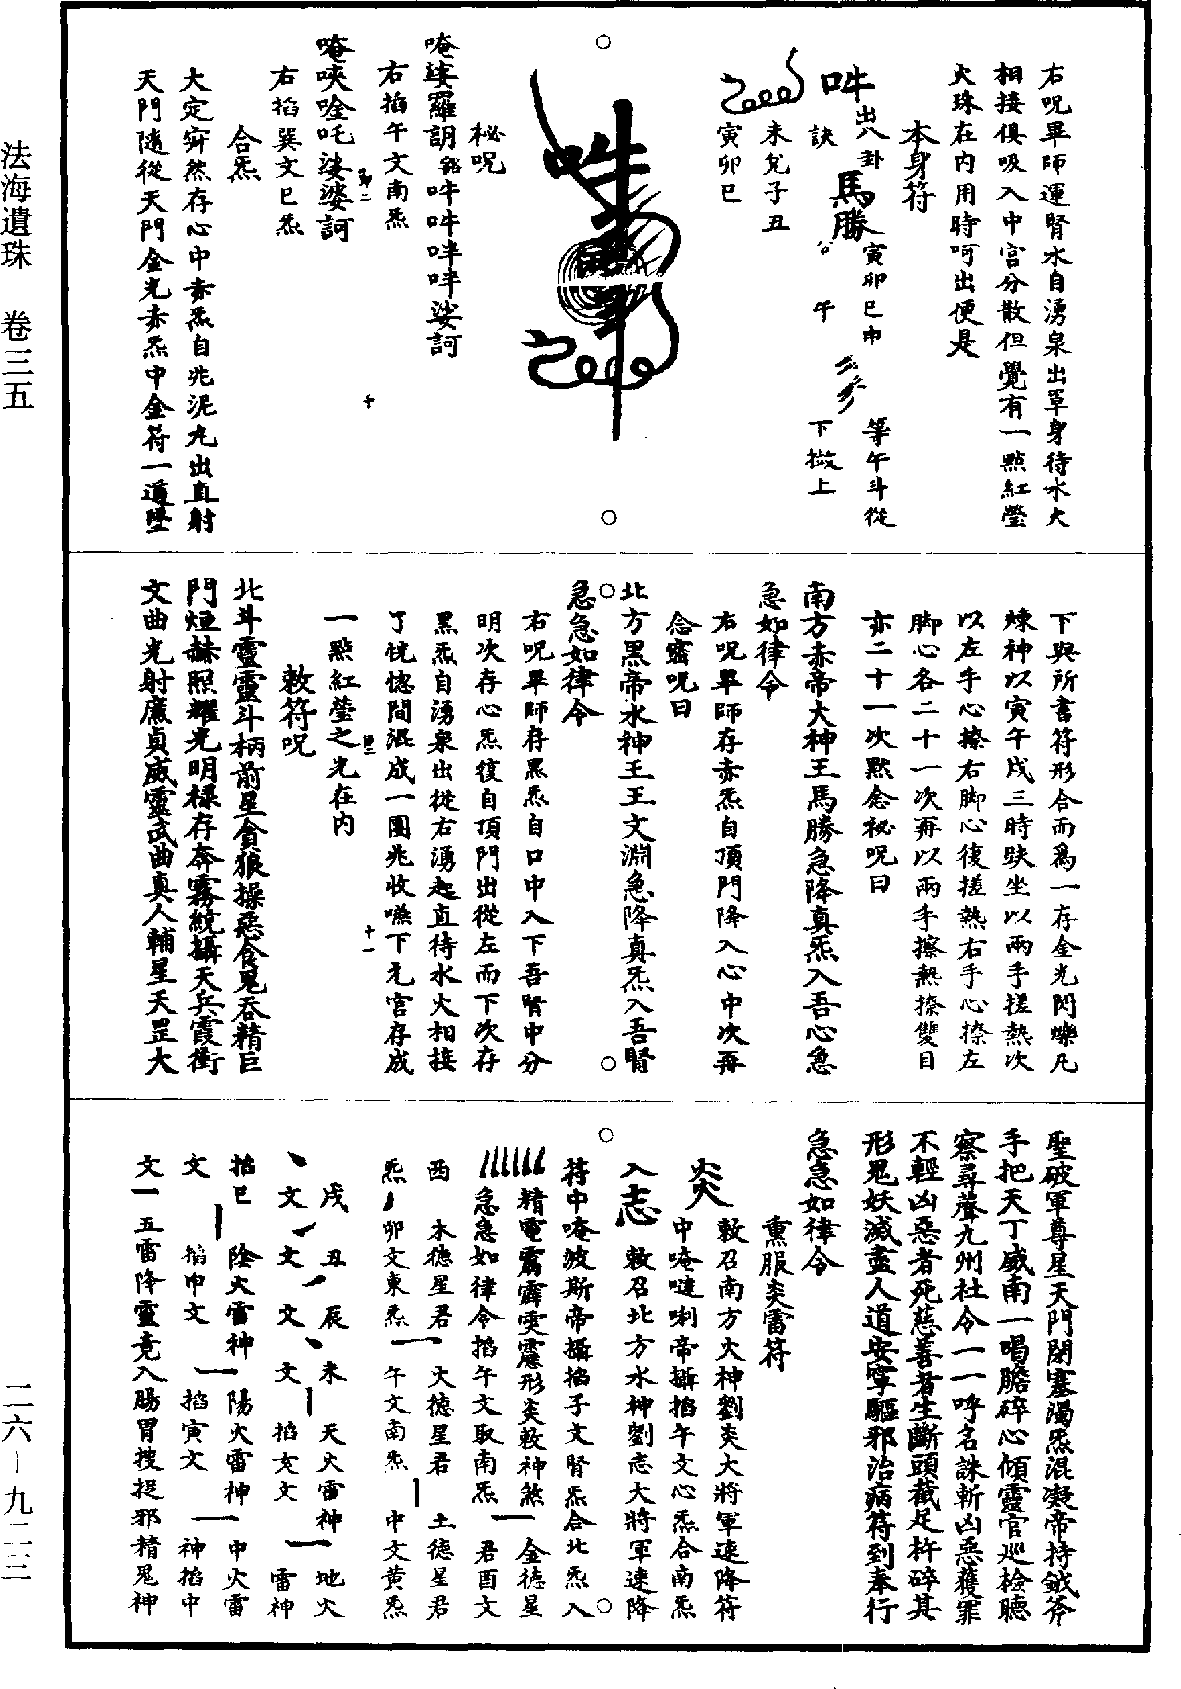 法海遺珠 卷三五
二六—九二三
右呪畢師運腎水自湧泉出罩身待水火
相接俱吸入中宮分散但覺有一點紅瑩
火珠在內用時呵出便是
本身符
吽 出八卦 馬勝 寅卯巳申 等午斗從
訣 午 下撥上
未兌子丑
寅卯巳
秘呪
唵娑羅䚱 吽吽吽吽娑訶
右掐午文南炁
唵唊唫吒娑婆訶
右掐巽文巳炁
合炁
大定㝛然存心中赤炁自兆泥丸出直射
天門隨從天門金光赤炁中金符一道墜
下與所書符形合而爲一存金光閃爍凡
煉神以寅午戌三時趺坐以兩手搓熱次
以左手心擦右脚心復搓熱右手心擦左
脚心各二十一次再以兩手擦熱擦雙目
亦二十一次默念秘呪曰
南方赤帝大神王馬勝急降真炁入吾心急
急如律令
右呪畢師存赤炁自頂門降入心中次再
念密呪曰
北方黑帝水神王王文淵急降真炁入吾腎
急急如律令
右呪畢師存黑炁自口中入下吾腎中分
明次存心炁復自頂門出從左而下次存
黑炁自湧泉出從右湧起直待水火相接
了恍惚間混成一團兆收嚥下元宮存成
一點紅瑩之光在內
敕符呪
北斗靈靈斗柄前星貪狼操惡食鬼吞精巨
門烜赫照耀光明祿存奔霧統攝天兵霞衝
文曲光射廉貞威靈武曲真人輔星天罡大
聖破軍尊星天門閉塞濁炁混凝帝持鉞斧
手把天丁威南一喝膽碎心傾靈官巡檢聽
察尋聲九州社令一一呼名誅斬凶惡獲罪
不輕凶惡者死慈善者生斷頭截足杵碎其
形鬼妖滅盡人道安寧驅邪治病符到奉行
急急如律令
熏服炎雷符
炎 敕召南方火神劉炎大將軍速降符
中唵噠唎帝攝掐午文心炁合南炁
入志 敕召北方水神劉志大將軍速降
符中唵波斯帝攝掐子文腎炁合北炁入
精電霹靂霳形炎敕神煞 金德星
急急如律令掐午文取南炁 君酉文
酉 木德星君 火德星君 土德星君
炁 卯文東炁 午文南炁 中文黃炁
戌 丑 辰 未 天火雷神 地火
文 文 文 文 掐亥文 雷神
掐巳 陰火雷神 陽火雷神 中火雷
文 掐申文 掐寅文 神掐中
文 五雷降靈竟入腸胃搜捉邪精鬼神